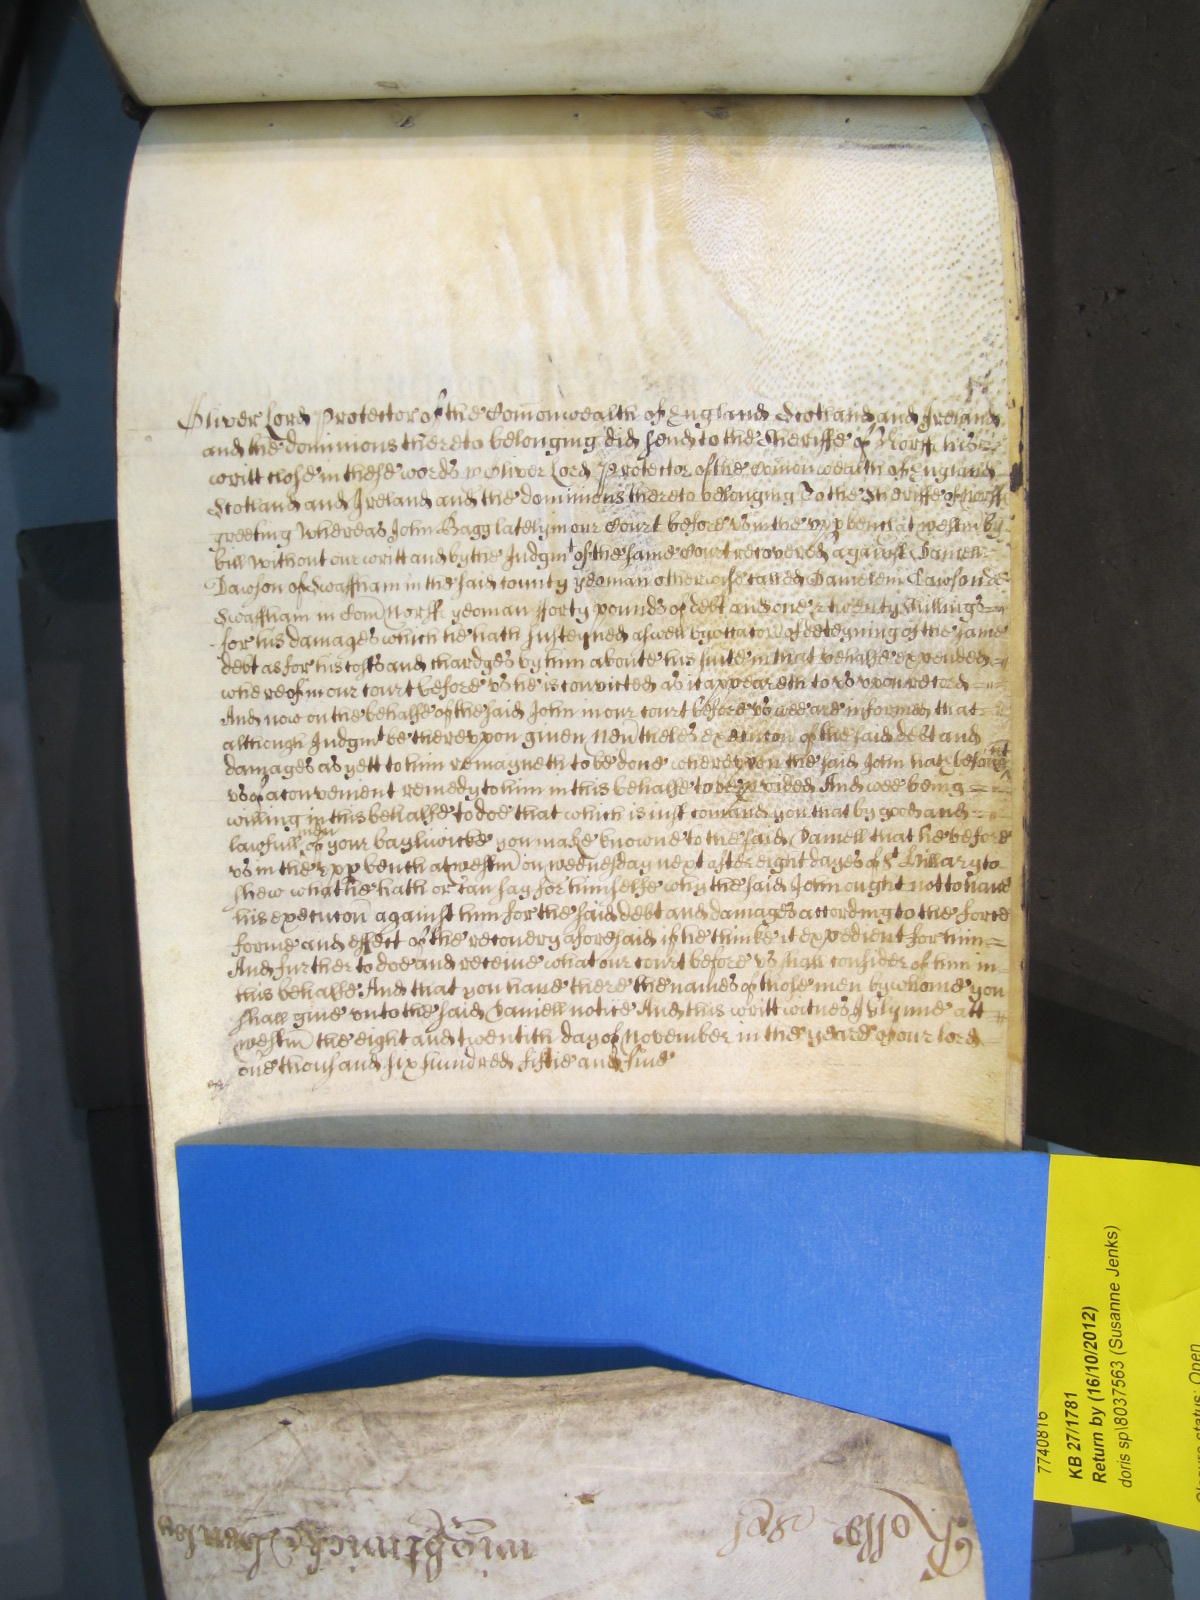 Oliver Lord Protector of the Com̄onwealth of England Scotland and Ireland
and the dominions thereto belonging did send to the Sheriffe of Norff his
writt close in these words Oliver Lord Protector of the Com̄onwealth of England
Scotland and Ireland and the dominions thereto belonging To the Sheriffe of Norff
greeting Whereas John Bagg lately in our Court before vs in the vpp bench at Westm̄ by
bill without our writt and by the Judgmt of the same Court recovered against Daniell
Dawson of Swaffham in the said county yeoman otherwise called
Swaffham in Com̄ Norff yeoman fforty pounds of debt and one & twenty shillings
for his damages which he hath susteyned aswell by occac̄on of deteyning of the same
debt as for his costs and chardges by him about his suite in that behalfe expended
whereof in our court before vs he is convicted as it appeareth to vs vpon record
And now on the behalfe of the said John in our court before vs wee are informed that
although Judgmt be therevpon given Nev̄theles execuc̄on of the said debt and
damages as yett to him remayneth to be done wherevpon the said John hath besought
vs of a convenient remedy to him in this behalfe to be provided And wee being
willing in this behalfe to doe that which is just com̄and you that by good and
lawfull men of your bayliwicke you make knowne to the said Daniell that he be before
vs in the vpp bench at Westm̄ on Wednesday next after eight dayes of St Hillary to
shew what he hath or can say for himselfe why the said John ought not to have
his execuc̄on against him for the said debt and damages according to the force
forme and effect of the recovery aforesaid if he thinke it expedient for him
And further to doe and receive what our court before vs shall consider of him in
this behalfe And that you have there the names of those men by whome you
shall give vnto the said Daniell notice And this writt witnes Glynne att
Westm̄ the eight and twentith day of November in the yeare of our Lord
one thousand six hundred fiftie and five
7740816
KB 27/1781
Return by (16/10/2012)
doris sp\8037563 (Susanne Jenks)
Closure status: Open